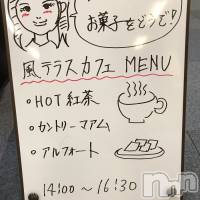 お菓子をどうぞ!
風テラスカフェ MENU
・HOT 紅茶
・カントリーマアム
・アルフォート
14:00〜16:30